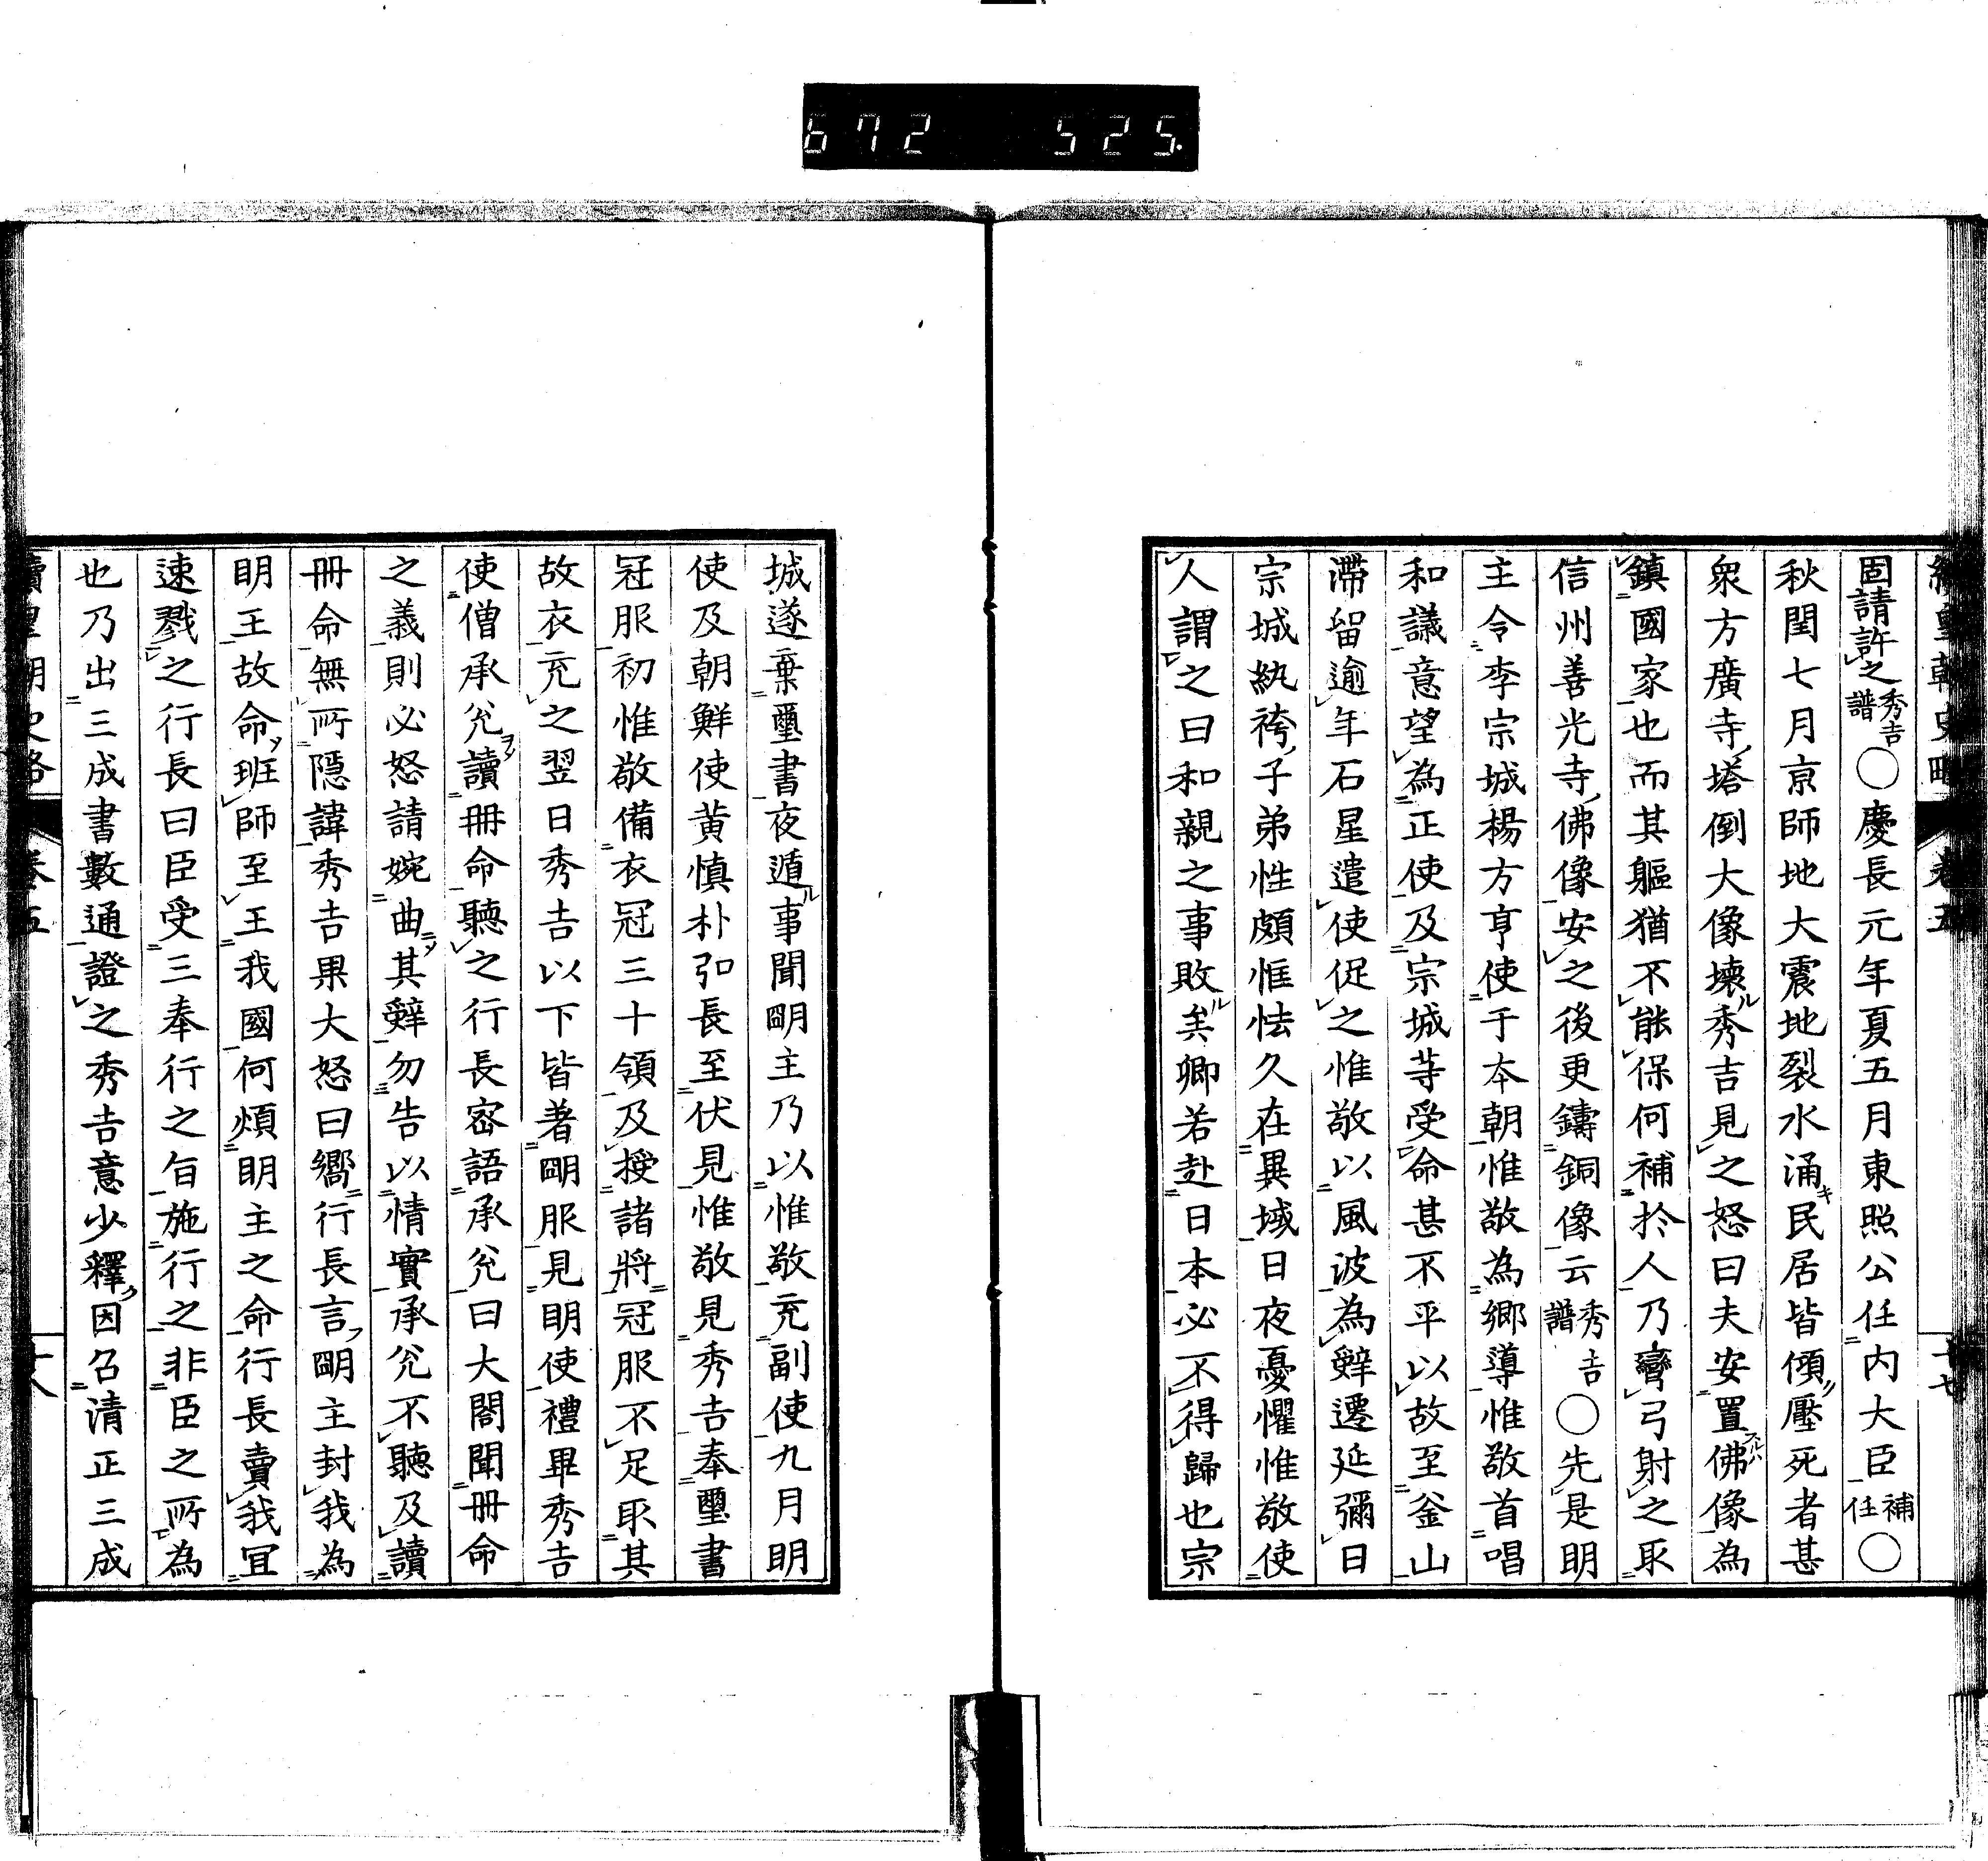 672 525.
續皇朝史略 卷五 十七
固請許之秀吉譜○慶長元年夏五月東照公任内大臣補任○
秋閏七月京師地大震地裂水涌民居皆傾壓死者甚
衆方廣寺塔倒大像壞秀吉見之怒曰夫安置佛像為
鎮國家也而其軀猶不能保何補於人乃彎弓射之取
信州善光寺佛像安之後更鑄銅像云秀吉譜○先是明
主令李宗城楊方亨使于本朝惟敬為鄉導惟敬首唱
和議意望為正使及宗城等受命甚不平以故至釜山
滯留逾年石星遣使促之惟敬以風波為辭遷延彌日
宗城紈袴子弟性頗恇怯久在異域日夜憂懼惟敬使
人謂之曰和親之事敗矣卿若赴日本必不得歸也宗
城遂棄璽書夜遁事聞明主乃以惟敬充副使九月明
使及朝鮮使黃慎朴弘長至伏見惟敬見秀吉奉璽書
冠服初惟敬備衣冠三十領及授諸將冠服不足取其
故衣充之翌日秀吉以下皆著明服見明使禮畢秀吉
使僧承兌讀冊命聽之行長密語承兌曰大閤聞冊命
之義則必怒請婉曲其辭勿告以情實承兌不聽及讀
冊命無所隱諱秀吉果大怒曰嚮行長言明主封我為
明王故命班師至王我國何煩明主之命行長賣我宜
速戮之行長曰臣受三奉行之旨施行之非臣之所為
也乃出三成書數通證之秀吉意少釋因召清正三成
續皇朝史略 卷五 十八